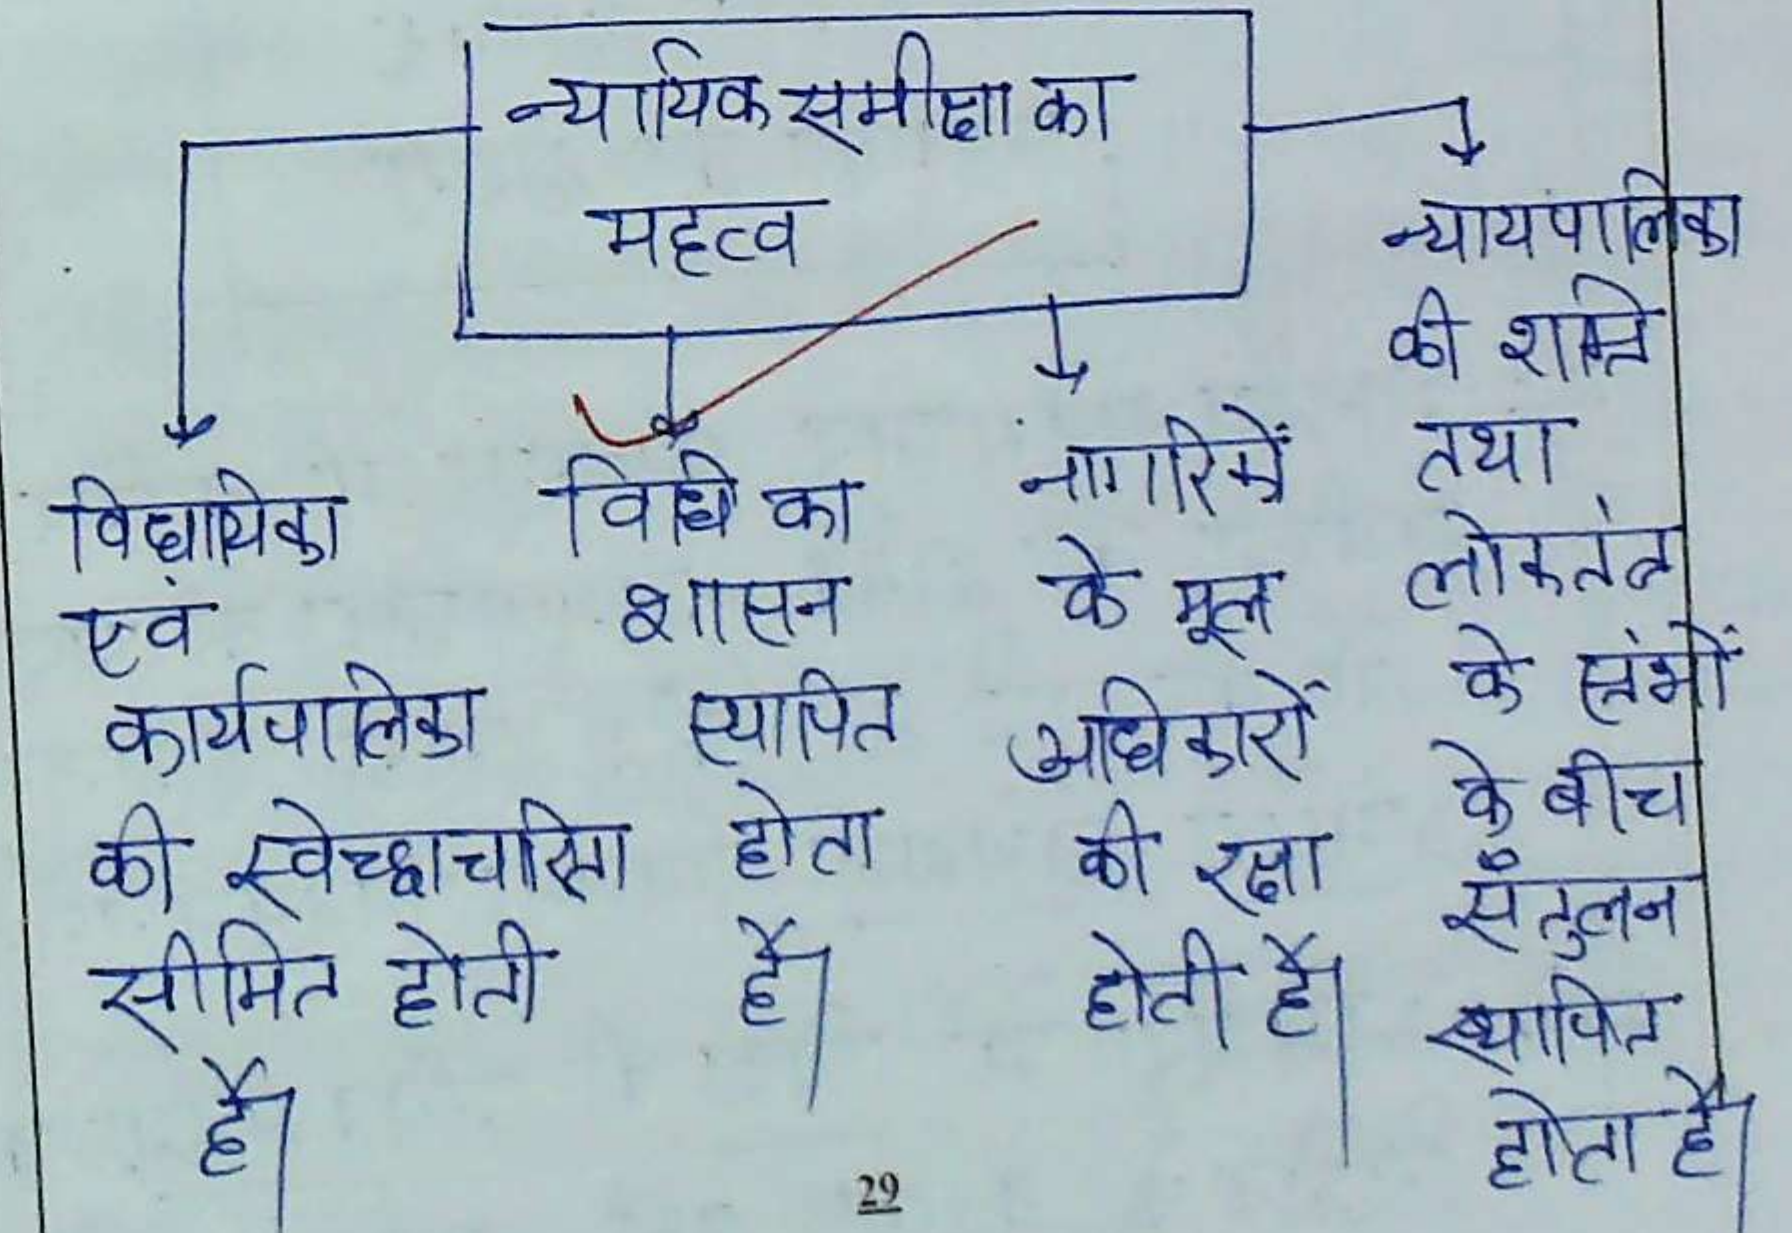 न्यायिक समीक्षा का
महत्व
विधायिका
एवं
कार्यपालिका
की स्वेच्छाचारिता
सीमित होती
है।
विधि का
शासन
स्थापित
होता
है।
नागरिकों
के मूल
अधिकारों
की रक्षा
होती है।
न्यायपालिका
की शक्ति
तथा
लोकतंत्र
के स्तंभों
के बीच
संतुलन
स्थापित
होता है।
29